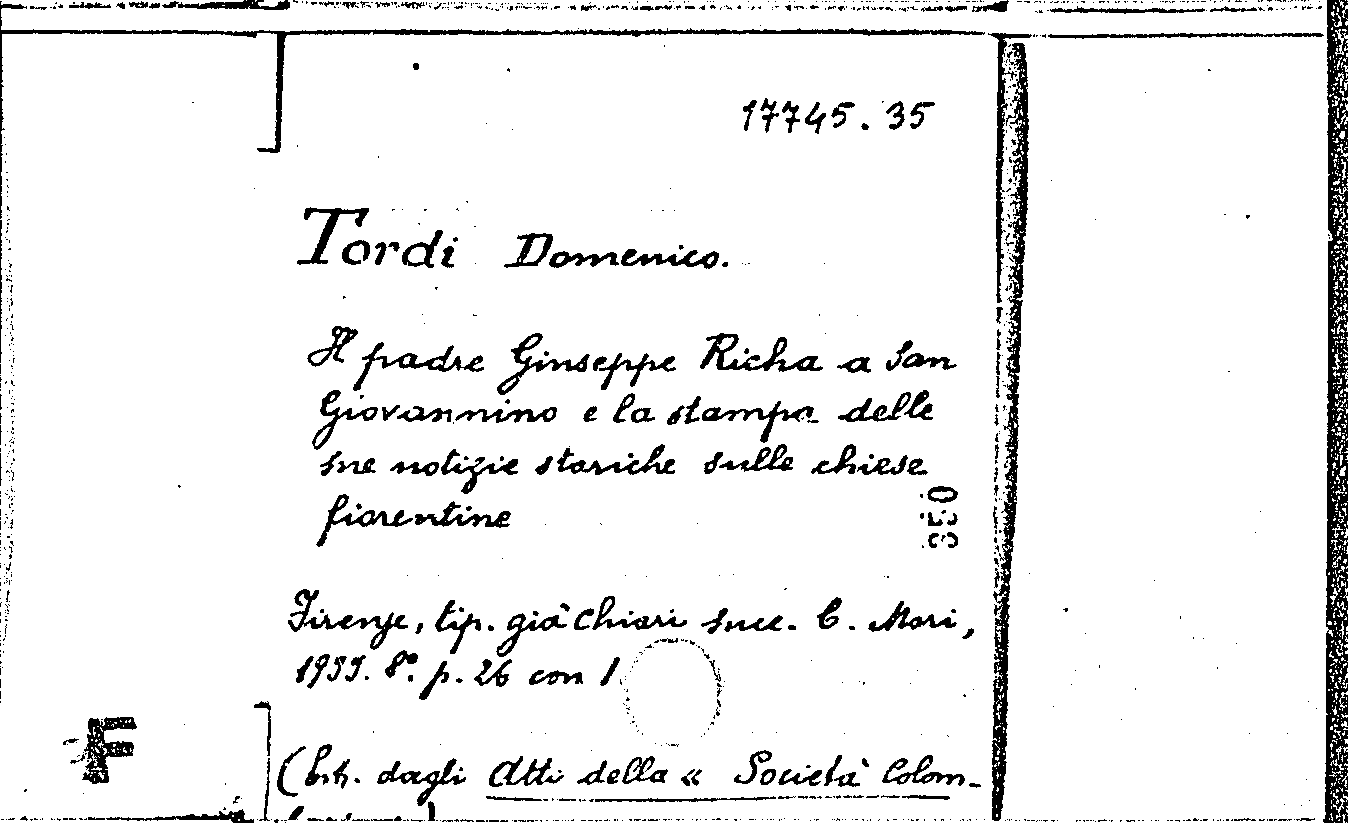 17745.35
Tordi Domenico.
Il padre Giuseppe Richa a San
Giovannino e la stampa delle
sue notizie storiche sulle chiese
fiorentine
350
Firenze, tip. già Chiari succ. C. Mori,
p. 26 con 1
F
(Estr. dagli Atti della « Società Colom-